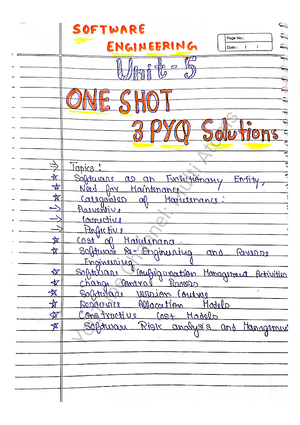 SOFTWARE
ENGINEERING
Page No.:
Date: / /
Unit - 5
ONE SHOT
3 PYQ Solutions
→ Topics:-
☆ Software as an Evolutionary Entity,
☆ Need for Maintenance
☆ Categories of Maintenance:-
→ Preventive
→ Corrective
→ Perfective
☆ Cost of Maintenance
☆ Software Re-Engineering and Reverse
Engineering
☆ Software Configuration Management Activities
☆ Change Control Process
☆ Software Version Control
☆ Resource Allocation Models
☆ Constructive Cost Models
☆ Software Risk analysis and Management